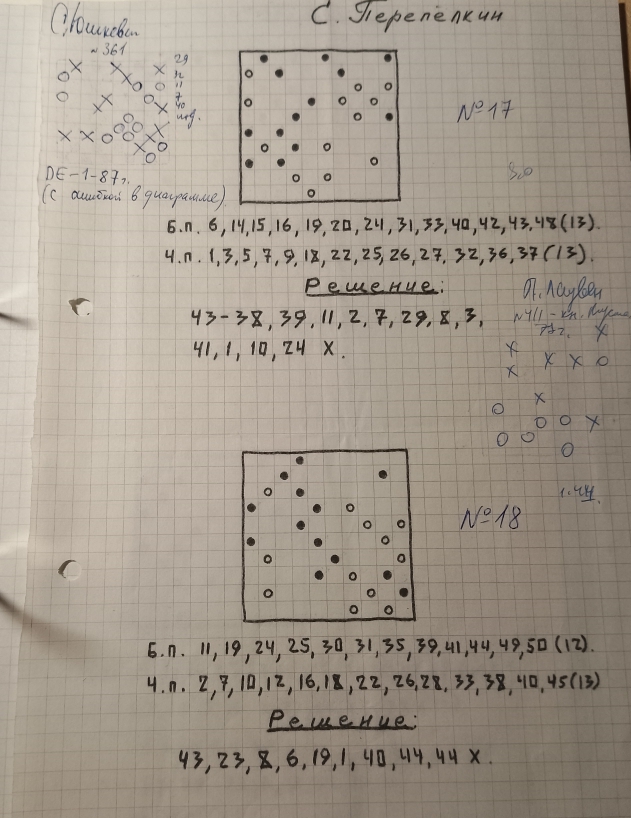 С. Перепёлкин
С. Юшкевич
№361
29
32
11
7
40
№17
DE-1-87г.
(с ошибкой в диаграмме)
Б.п. 6,14,15,16,19,20,24,31,33,40,42,43,48(13).
Ч.п. 1,3,5,7,9,18,22,25,26,27,32,36,37(13).
Решение:
43-38, 39, 11, 2, 7, 29, 8, 3,
41, 1, 10, 24 X.
№18
Б.п. 11,19,24,25,30,31,35,39,41,44,49,50(12).
Ч.п. 2,7,10,12,16,18,22,26,28,33,38,40,45(13)
Решение:
43, 23, 8, 6, 19, 1, 40, 44, 44 X.